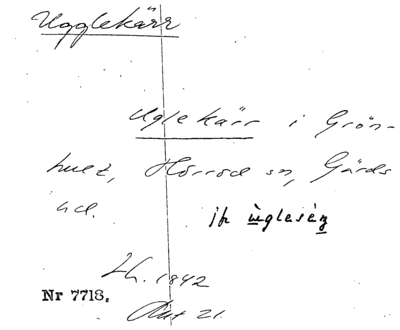 Ugglekärr
Uglekärr i Grön-
hult, Hörröd sn, Gärds
hd. jfr ùglesèʒ
Lh. 1842
Nr 7718.
Akt 21.